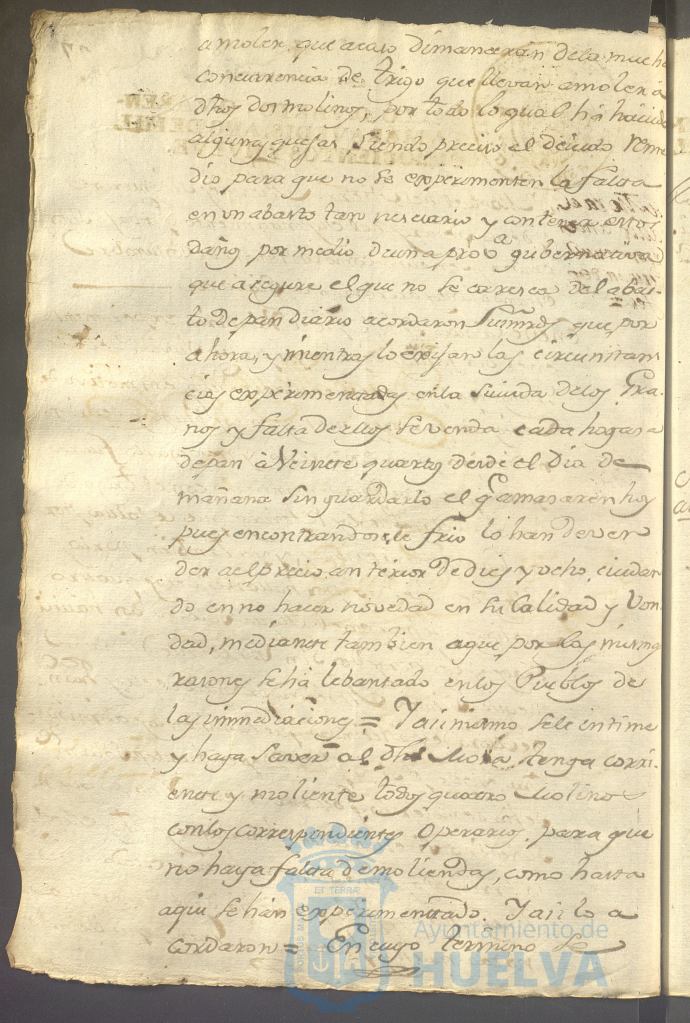 a moler, que acaso dimanaran de la mucha
concurrencia de trigo que llevan a moler a
dhos dos molinos, por todo lo qual há havido
algunas quejas, siendo preciso el devido reme
dio para que no se experimenten la falta
en un abasto tan nesesario y contenga estos
daños por medio de una prova gubernativa
que asegure el que no se caresca del abas
to de pan diario acordaron Sus mrds que por
ahora, y mientras lo exijan las circunstan
cias experimentadas en la suvida de los Gra
nos y falta de ellos se venda cada hogasa
de pan à Veinte quartos desde el dia de
mañana sin guardarlo el q amasaren hoy
pues encontrandosele frio lo han de ven
der a el precio anterior de dies y ocho, cuidan
do en no hacer novedad en su Calidad y Von
dad, mediante tambien aque por las mismas
rasones se há lebantado en los Pueblos de
las immediaciones = Y asi mismo se le intime
y haga saver al dho Mora tenga corri
ente y moliente todos quatro Molinos
con los correspondientes Operarios para que
no haya falta de moliendas, como hasta
aqui se hán experimentado. Y asi lo a
cordaron = En cuyo termino se
Ayuntamiento de
HUELVA